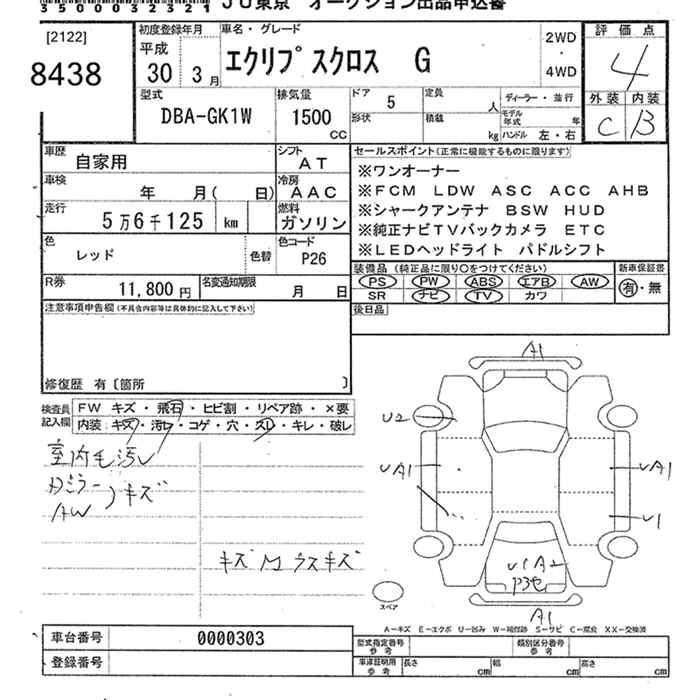 35000032321 JU東京 オークション出品申込書
[2122]
8438
初度登録年月
平成
30 3月
車名・グレード
エクリプスクロス G
2WD
・
4WD
評価点
4
外装 内装
C B
型式
DBA-GK1W
排気量
1500
CC
ドア 5
形状
定員 人
積載 kg
ディーラー・並行
モデル年式 年
ハンドル 左・右
車歴 自家用
シフト AT
車検 年 月( 日)
冷房 AAC
走行 5万6千125 km
燃料 ガソリン
色 レッド
色替
色コード P26
R券 11,800円
名変通知期限 月 日
セールスポイント(正常に機能するものに限ります)
※ワンオーナー
※FCM LDW ASC ACC AHB
※シャークアンテナ BSW HUD
※純正ナビTVバックカメラ ETC
※LEDヘッドライト パドルシフト
装備品(純正品に限り○をつけてください)
PS PW ABS エアB AW
SR ナビ TV カワ
新車保証書
有・無
後日品
注意事項申告欄(不具合内容等は具体的に記入して下さい)
修復歴 有〔箇所 〕
検査員記入欄
FW キズ・飛石・ヒビ割・リペア跡・×要
内装・キズ・汚レ・コゲ・穴・スレ・キレ・破レ
室内毛汚レ
Dミラー
AW
キズ
キズM ウスキズ
A1
U2
UA1
UA1
U1
U1A2
P3セ
A1
スペア
A－キズ E－エクボ U－凹み W－補修跡 S－サビ C－腐食 XX－交換済
車台番号 0000303
登録番号
型式指定番号
参考
類別区分番号
参考
車庫証明用
参考
長さ cm
幅 cm
高さ cm